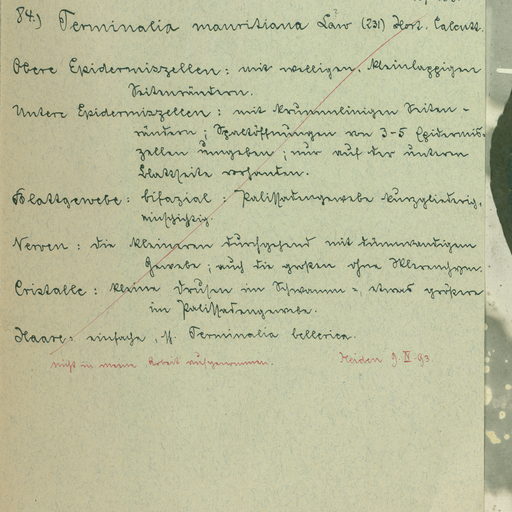 84.) Terminalia mauritiana Law (231) Hort. Calcutt.
Obere Epidermiszellen: mit welligen, kleinlappigen
Seitenrändern.
Untere Epidermiszellen: mit krummlinigen Seiten-
rändern; Spaltöffnungen von 3-5 Epidermis-
zellen umgeben; nur auf der unteren
Blattseite vorhanden.
Blattgewebe: bifazial: Palissadengewebe kurzgliederig,
einschichtig.
Nerven: die kleineren durchgehend mit dünnwandigem
Gewebe; auch die großen ohne Sklerenchym.
Cristalle: kleine Drusen im Schwamm-, etwas größere
im Palissadengewebe.
Haare: einfache, s. Terminalia bellerica.
nicht in meine Arbeit aufgenommen. Heiden 9. IV. 93.